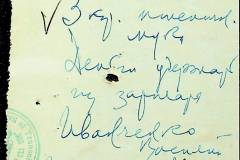 3 кгр. пшеничн.
муки
Деньги удержать
из зарплаты
Иванченко
Василий